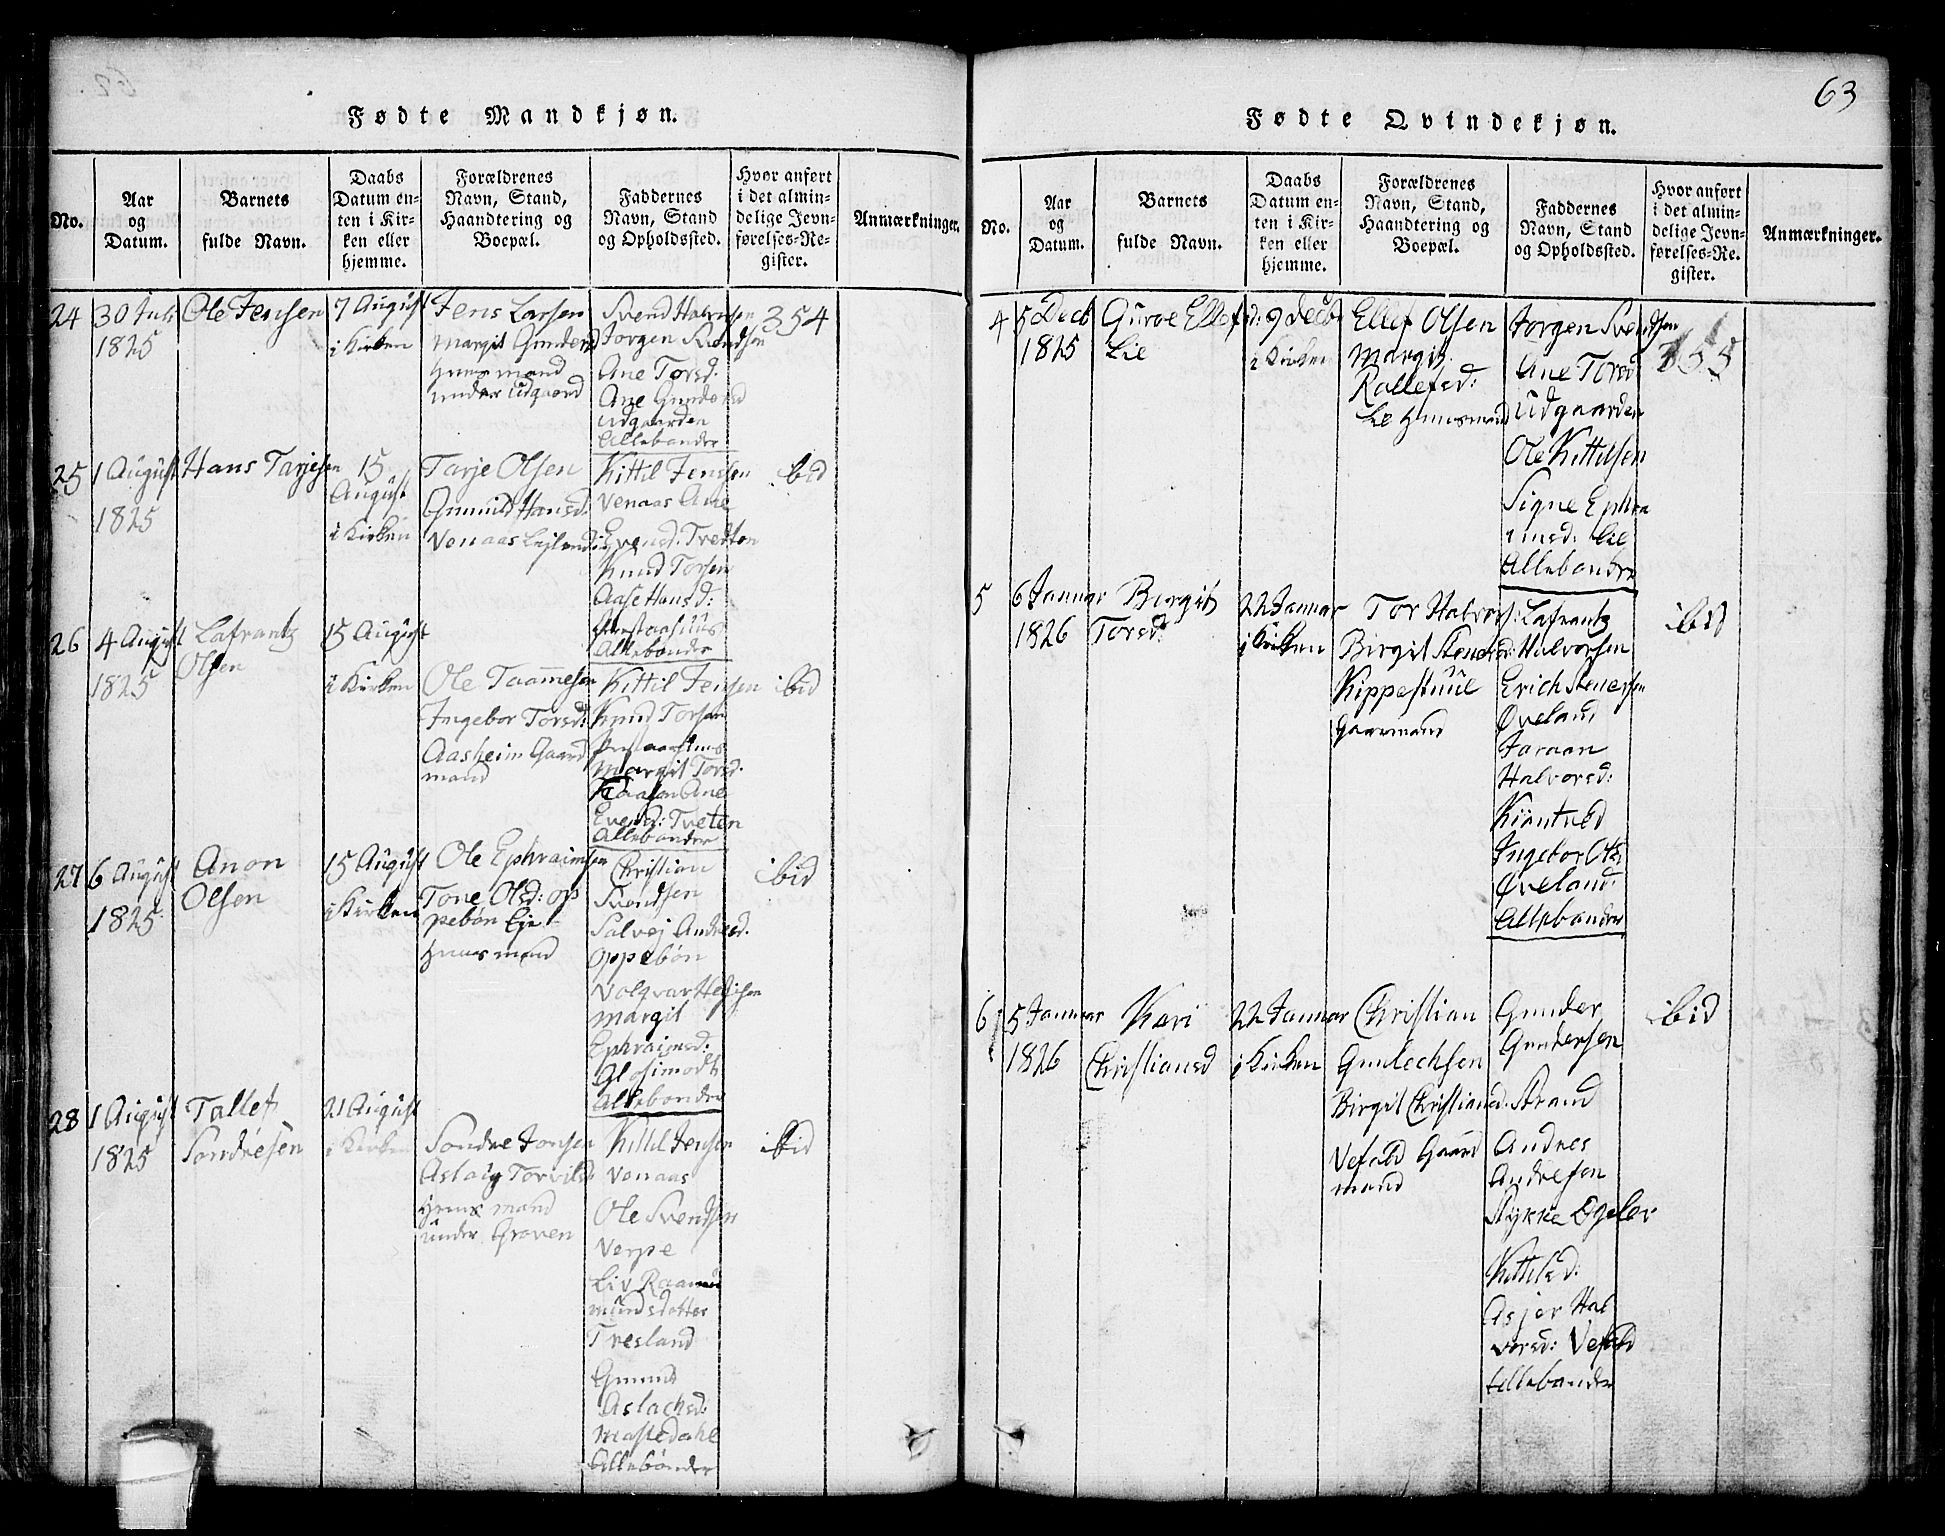 63
Fødte Mandkjøn.
No.
Aar
og
Datum.
Barnets
fulde Navn.
Daabs
Datum en-
ten i Kir-
ken eller
hjemme.
Forældrenes
Navn, Stand,
Haandtering og
Boepæl.
Faddernes
Navn, Stand
og Opholdssted.
Hvor anført
i det almin-
delige Jevn-
førelses-Re-
gister.
Anmærkninger.
24
30 Juli
1825
Ole Jensen
7 August
i Kirken
Jens Larsen
Margit Gundersd
Huusmand
under Udgaard
Svend Halvorsen
Jorgen Svendsen
Ane Torsd:
Ane Gundersd
Udgaarden
Allebønder
354
25
1 August
1825
Hans Tarjesen
15
August
i Kirken
Tarje Olsen
Gunnild Hansd:
Venaas Lejlending
Kittil Jensen
Venaas Ane
Evensd: Tvedten
Knud Torsen
Aase Hansd:
Allebønder
ibid
26
4 August
1825
Lafrantz
Olsen
15 August
i Kirken
Ole Taamesen
Ingebor Torsd:
Aasheim Gaard
mand
Kittil Jensen
Knud Torsen
Margit Torsd.
Ane
Evensd: Tveten
Allebønder
ibid
27
6 August
1825
Anon
Olsen
15 August
i Kirken
Ole Ephraimsen
Tone Olsd: Op
pebøn Eje
Huusmand
Christian
Svendsen
Salvej Andresd.
Oppebøn
Volqvar Hejsen
Margit
Ephraimsd:
Glosimodt
Allebønder
ibid
28
1 August
1825
Tallef
Sondresen
21 August
i Kirken
Sondre Jonsen
Aslaug Torvilds
Huusmand
under Groven
Kittil Jensen
Venaas
Ole Svendsen
Verpe
Liv Raamund
mundsdatter
Tresland
Gunnild
Aslachsd:
Mastedahl
Allebønder
ibid
Fødte Qvindekjøn.
No.
Aar
og
Datum.
Barnets
fulde Navn.
Daabs
Datum en-
ten i Kir-
ken eller
hjemme.
Forældrenes
Navn, Stand,
Haandtering og
Boepæl.
Faddernes
Navn, Stand
og Opholdssted.
Hvor anført
i det almin-
delige Jevn-
førelses-Re-
gister.
Anmærkninger.
4
5 Decb
1825
Gunroe Ellefsd:
Lie
9 Decbr
i Kirken
Ellef Olsen
Margit
Rollefsd:
Lie Huusmand
Jorgen Svendsen
Ane Torsd
Udgaarden
Ole Kittilsen
Signe Ephra
imsd: Lie
Allebønder
355
5
6 Januar
1826
Birgit
Torsd:
22 Januar
i Kirken
Tor Halvors:
Birgit Stenersd:
Kippestuul
Gaarmand
Lafrantz
Halvorsen
Erich Stenersen
Øveland
Joraan
Halvorsd:
Kiøntveld
Ingebor Ols:
Øveland:
Allebønder
ibid
6
5 Januar
1826
Kari
Christiansd
22 Januar
i Kirken
Christian
Gunlechsen
Birgit Christiansd:
Vefald Gaard
mand
Gunder
Gundersen
Strand
Andres
Andresen
Stykke Egeler
Kittilsd:
Asjer Hal
vorsd: Vefald
Allebønder
ibid